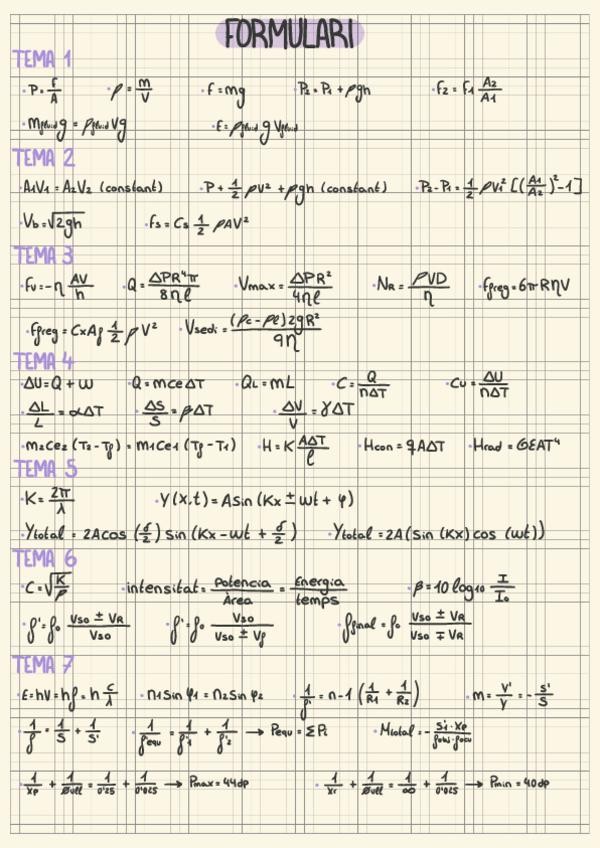 FORMULARI
TEMA 1
· P = F/A · ρ = m/V · F = mg · P₂ = P₁ + ρgh · F₂ = F₁ A₂/A₁
· mfluid g = ρfluid Vg · E = ρfluid g Vfluid
TEMA 2
· A₁V₁ = A₂V₂ (constant) · P + 1/2 ρv² + ρgh (constant) · P₂ - P₁ = 1/2 ρV₁² [(A₁/A₂)² - 1]
· Vb = √2gh · Fs = Cs 1/2 ρAV²
TEMA 3
· Fv = -η AV/h · Q = ΔPR⁴π/8ηl · Vmax = ΔPR²/4ηl · NR = ρVD/η · Ffreg = 6πRηV
· Ffreg = CxAf 1/2 ρV² · Vsedi = (ρc - ρl)2gR²/9η
TEMA 4
· ΔU = Q + W · Q = mceΔT · QL = mL · C = Q/nΔT · Cv = ΔU/nΔT
· ΔL/L = αΔT · ΔS/S = βΔT · ΔV/V = γΔT
· m₂Ce₂ (T₂ - Tf) = m₁Ce₁ (Tf - T₁) · H = K AΔT/l · Hcon = qAΔT · Hrad = σEAT⁴
TEMA 5
· K = 2π/λ · Y(x,t) = Asin (Kx ± wt + φ)
· Ytotal = 2Acos (δ/2) sin (Kx - wt + δ/2) · Ytotal = 2A(sin (Kx) cos (wt))
TEMA 6
· C = √K/ρ · intensitat = Potencia/Àrea = Energia/temps · β = 10 log₁₀ I/I₀
· f' = f₀ Vso ± VR/Vso · f' = f₀ Vso/Vso ± Vf · ffinal = f₀ Vso ± VR/Vso ∓ VR
TEMA 7
· E = hV = hf = h C/λ · n₁sin φ₁ = n₂sin φ₂ · 1/f' = n-1 (1/R₁ + 1/R₂) · m = Y'/Y = - S'/S
· 1/f' = 1/S + 1/S' · 1/f'equ = 1/f'₁ + 1/f'₂ → Pequ = ΣPi · Mtotal = - Si·Xp/fobj·focu
· 1/Xp + 1/Øull = 1/0'25 + 1/0'025 → Pmax = 44dp · 1/Xr + 1/Øull = 1/∞ + 1/0'025 → Pmin = 40dp